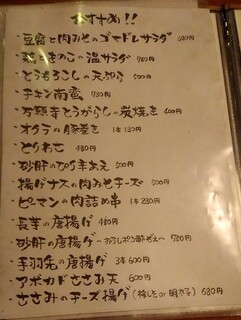 おすすめ!!
・豆腐と肉みそのゴマドレサラダ 680円
・鶏ときのこの温サラダ 780円
・とうもろこしの天ぷら 500円
・チキン南蛮 780円
・万願寺とうがらしの炭焼き 400円
・オクラの豚巻き 1本180円
・とりわさ 480円
・砂肝のピリ辛あえ 500円
・揚げナスの肉みそチーズ 500円
・ピーマンの肉詰め串 1本230円
・長芋の唐揚げ 480円
・砂肝の唐揚げ 〜おろしポン酢ぞえ〜 780円
・手羽先の唐揚げ 3本600円
・アボカドささみ天 600円
・ささみのチーズ揚げ (梅しそor明太子) 680円